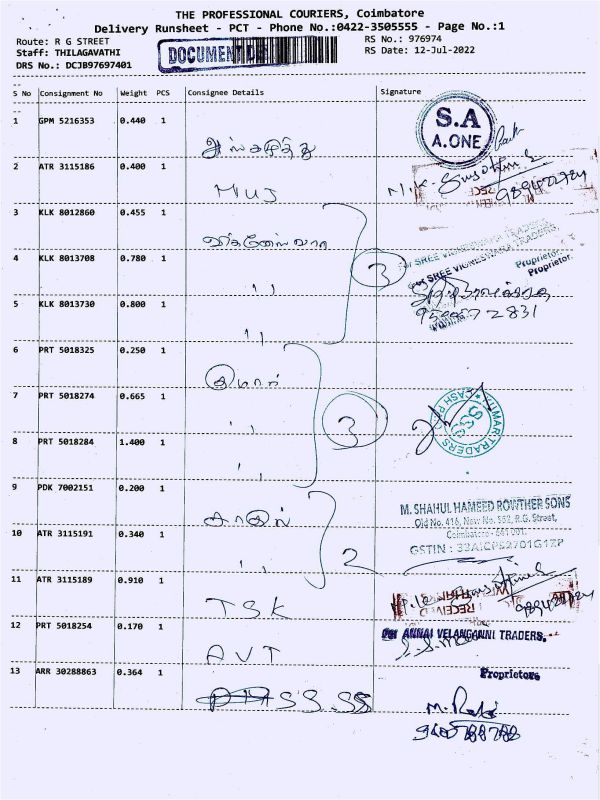 THE PROFESSIONAL COURIERS, Coimbatore
Delivery Runsheet - PCT - Phone No.:0422-3505555 - Page No.:1
Route: R G STREET
RS No.: 976974
Staff: THILAGAVATHI
RS Date: 12-Jul-2022
DRS No.: DCJB97697401
DOCUMENT
S No Consignment No Weight PCS Consignee Details Signature
1 GPM 5216353 0.440 1
S.A
A.ONE
2 ATR 3115186 0.400 1 MUJ
9894272724
3 KLK 8012860 0.455 1 விக்னேஸ்வரா
For SREE VIGNESWARA TRADERS,
For SREE VIGNESWARA TRADERS,
Proprietor
Proprietor.
4 KLK 8013708 0.780 1 ,, 3
5 KLK 8013730 0.800 1 ,,
6 PRT 5018325 0.250 1 குமார்
7 PRT 5018274 0.665 1 ,, 3
KUMAR TRADERS
8 PRT 5018284 1.400 1 ,,
9 PDK 7002151 0.200 1
M. SHAHUL HAMEED ROWTHER SONS
Old No. 416, New No. 552, R.G. Street,
Coimbatore - 641 001.
10 ATR 3115191 0.340 1 ,, 2
11 ATR 3115189 0.910 1 TSK
RECEIVED
12 PRT 5018254 0.170 1 AVT
For ANNAI VELANGANNI TRADERS,
Proprietors
13 ARR 30288863 0.364 1 S.S.SS